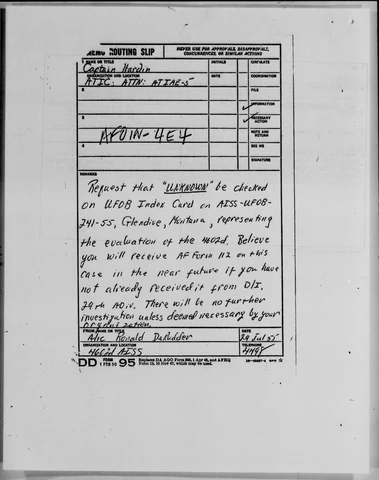 MEMO ROUTING SLIP
NEVER USE FOR APPROVALS, DISAPPROVALS, CONCURRENCES, OR SIMILAR ACTIONS
1 NAME OR TITLE
INITIALS
CIRCULATE
Captain Hardin
ORGANIZATION AND LOCATION
DATE
COORDINATION
ATIC: ATTN: ATIAE-5
2
FILE
INFORMATION
3
NECESSARY ACTION
AFOIN-4E4
NOTE AND RETURN
4
SEE ME
SIGNATURE
REMARKS
Request that "UNKNOWN" be checked
on UFOB Index Card on AISS-UFOB-
241-55, Glendive, Montana, representing
the evaluation of the 4602d. Believe
you will receive AF Form 112 on this
case in the near future if you have
not already received it from D/I,
29th ADiv. There will be no further
investigation unless deemed necessary by your
organization.
FROM NAME OR TITLE
DATE
A/1c Ronald DeRudder
29 Jul 55
ORGANIZATION AND LOCATION
TELEPHONE
4602d AISS
DD FORM 1 FEB 50 95
Replaces DA AGO Form 895, 1 Apr 48, and AFHQ
Form 12, 10 Nov 47, which may be used.